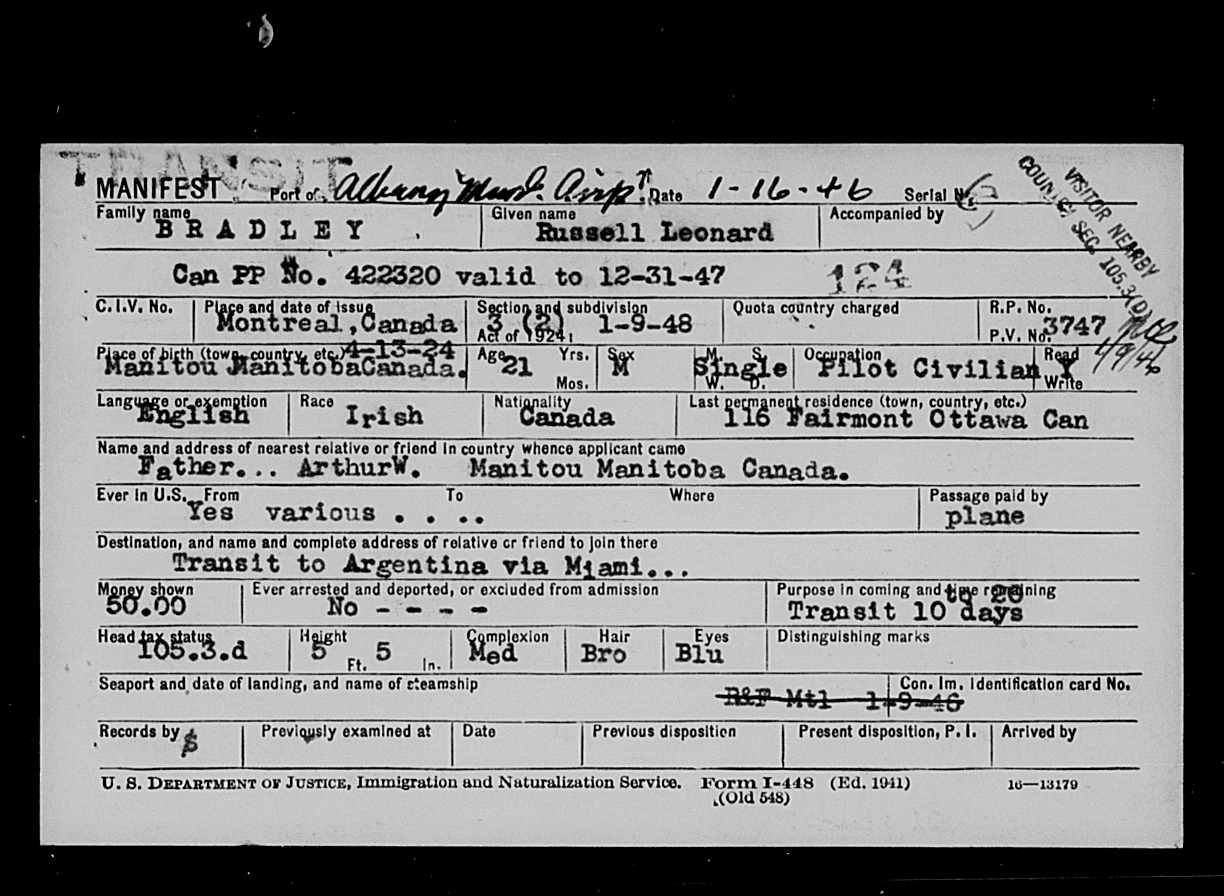 TRANSIT
MANIFEST Port of Albany Mun. Airp't. Date 1-16-46 Serial No.
VISITOR NEARBY
COUN SEC 105.3(D)
1/9/46
Family name BRADLEY Given name Russell Leonard Accompanied by
Can PP No. 422320 valid to 12-31-47 124
C.I.V. No. Place and date of issue Montreal,Canada Section and subdivision 3 (2) 1-9-48 Act of 1924: Quota country charged R.P. No. P.V. No. 3747
Place of birth (town, country, etc.) 4-13-24 Manitou ManitobaCanada. Age 21 Yrs. Mos. Sex M M. S. W. D. Single Occupation Pilot Civilian Read Y Write
Language or exemption English Race Irish Nationality Canada Last permanent residence (town, country, etc.) 116 Fairmont Ottawa Can
Name and address of nearest relative or friend in country whence applicant came
Father... ArthurW. Manitou Manitoba Canada.
Ever in U.S. From To Where Passage paid by
Yes various . . .. plane
Destination, and name and complete address of relative or friend to join there
Transit to Argentina via Miami...
Money shown 50.00 Ever arrested and deported, or excluded from admission No - - - - Purpose in coming and time remaining to 26 Transit 10 days
Head tax status 105.3.d Height 5 Ft. 5 In. Complexion Med Hair Bro Eyes Blu Distinguishing marks
Seaport and date of landing, and name of steamship R&F Mtl 1-9-46 Con. Im. Identification card No.
Records by Previously examined at Date Previous disposition Present disposition, P. I. Arrived by
U. S. DEPARTMENT OF JUSTICE, Immigration and Naturalization Service. Form I-448 (Ed. 1941) 16—13179
(Old 548)